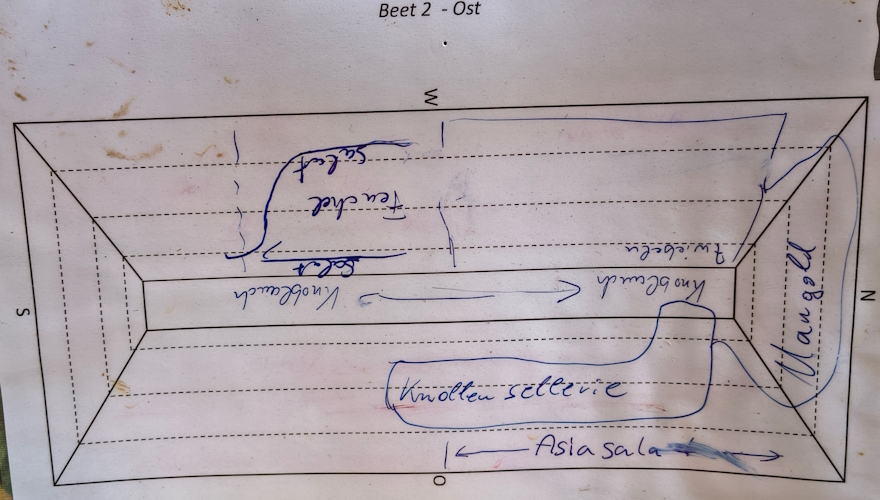 Beet 2 - Ost
W
Salat
Fenchel
Salat
Zwiebeln
Knoblauch
Knoblauch
S
N
Mangold
Knollensellerie
Asiasala
O